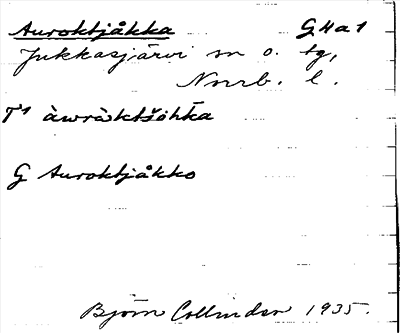 Auroktjåkka G4a1
Jukkasjärvi sn o. tg,
Norrb. l.
T1 àwràktšǒhka
G Auroktjåkko
Björn Collinder 1935.